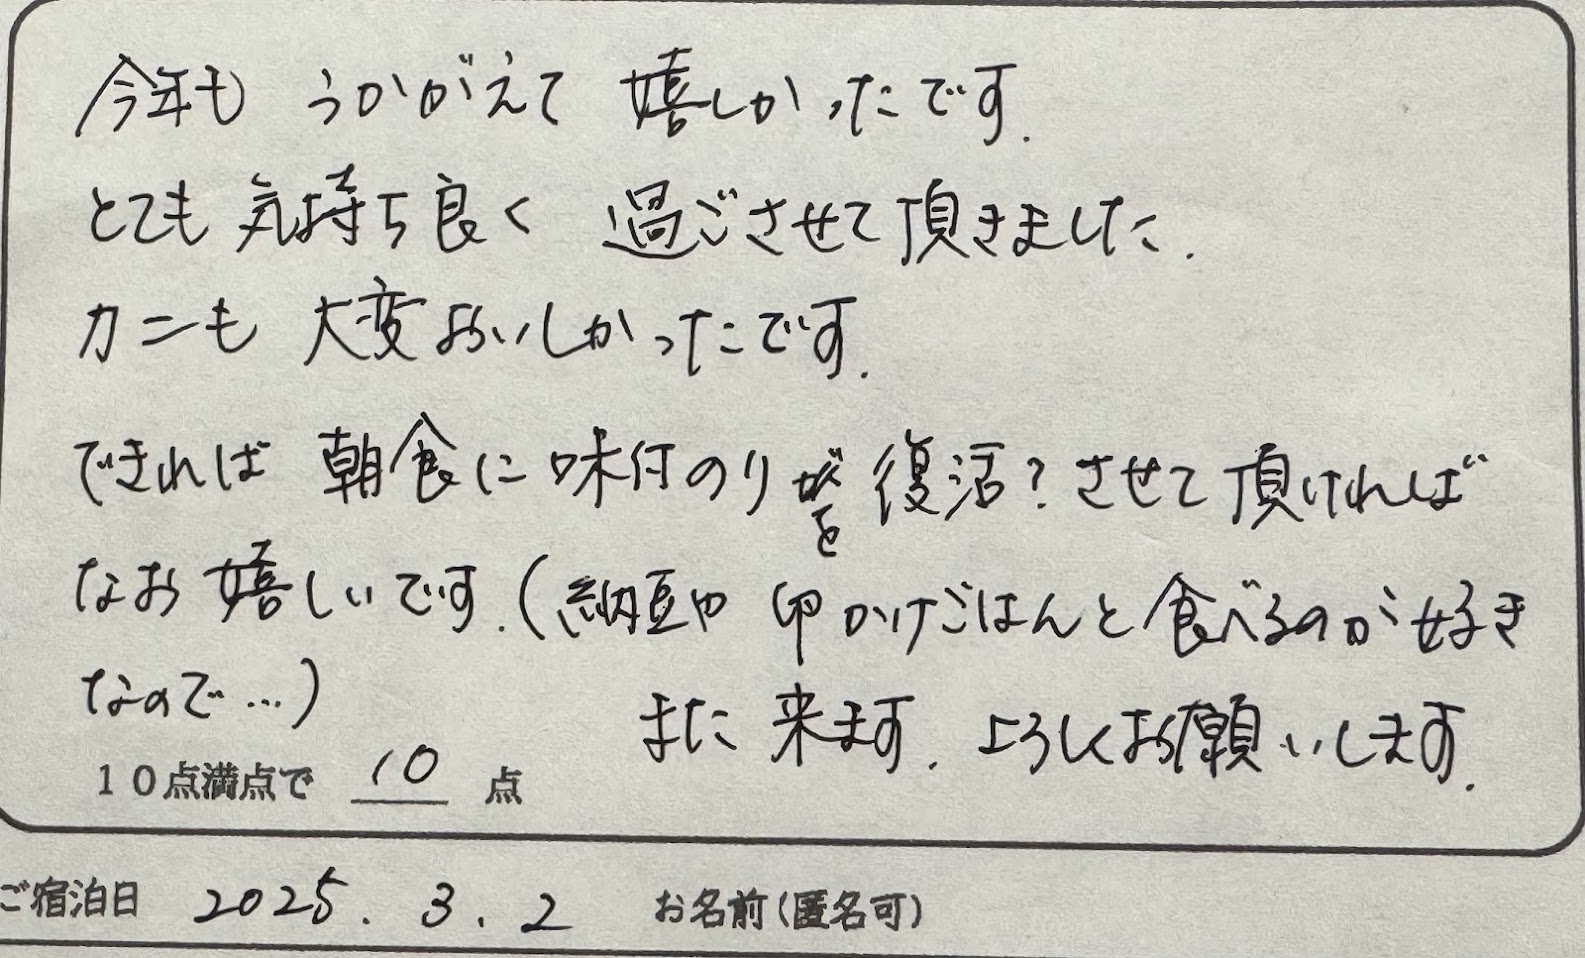 今年も うかがえて 嬉しかったです.
とても 気持ち良く 過ごさせて頂きました.
カニも 大変おいしかったです.
できれば 朝食に味付のりを復活?させて頂ければ
なお嬉しいです.(納豆や 卵かけごはんと食べるのが好き
なので…)
また来ます. よろしくお願いします.
10点満点で 10 点
ご宿泊日 2025. 3. 2 お名前(匿名可)